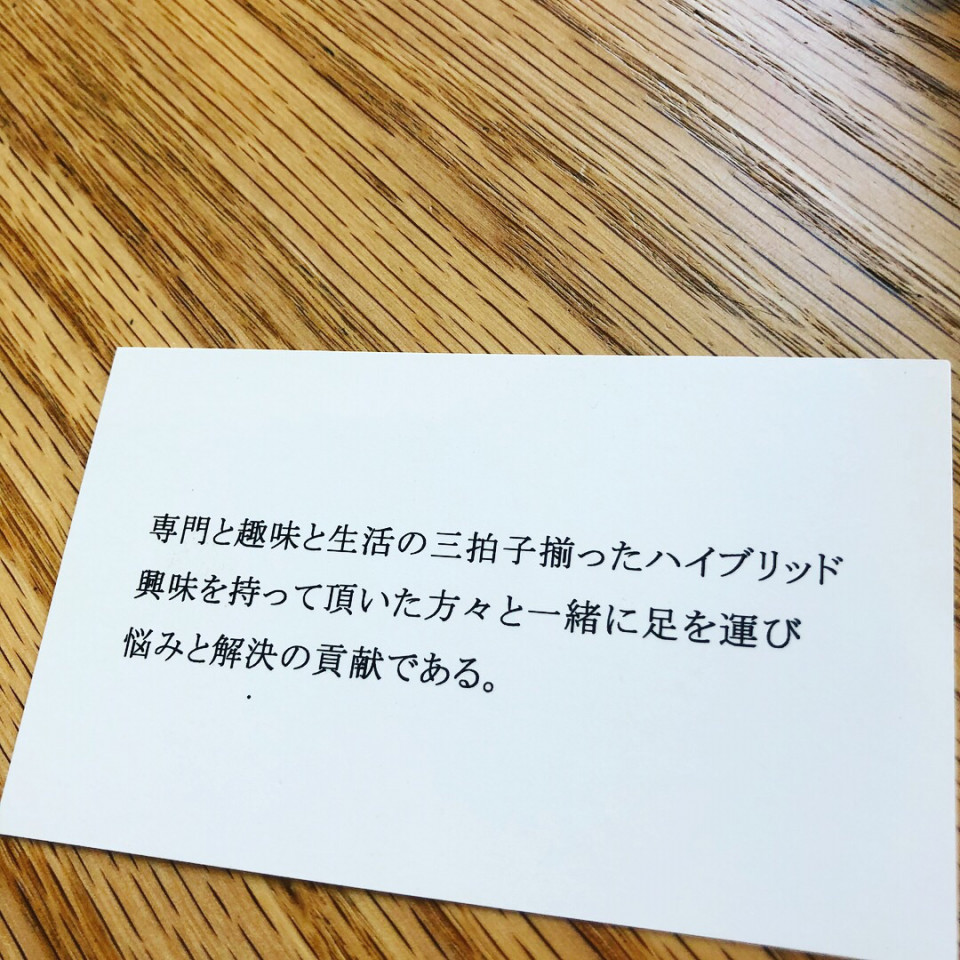 専門と趣味と生活の三拍子揃ったハイブリッド
興味を持って頂いた方々と一緒に足を運び
悩みと解決の貢献である。